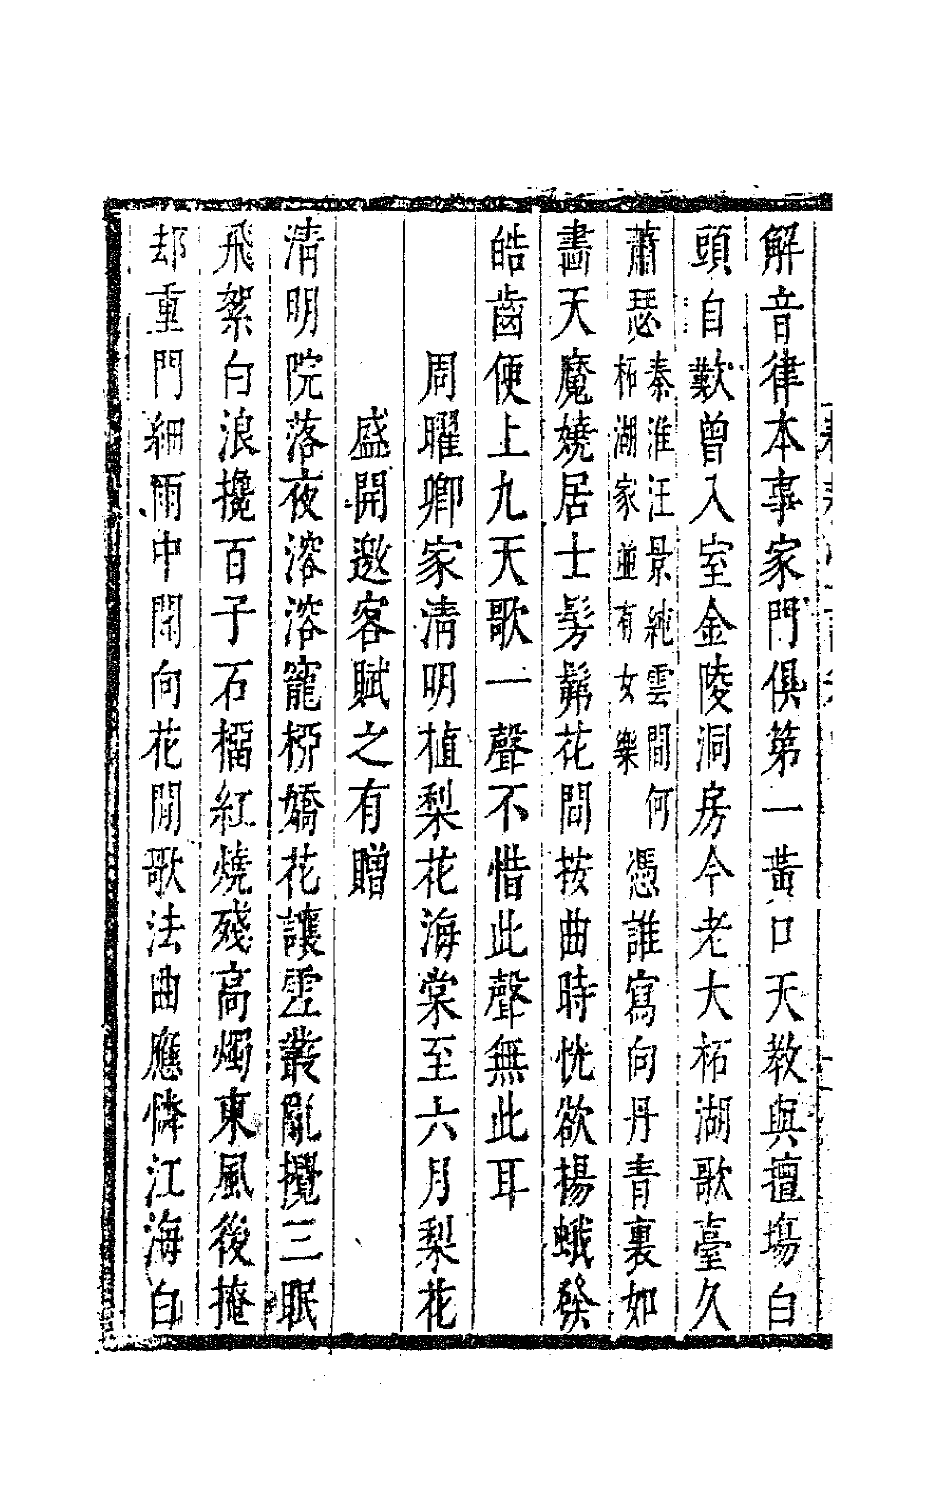 解音律本事家門俱第一黃口天教與擅塲白
頭自歎曾入室金陵洞房今老大柘湖歌臺久
蕭瑟秦淮汪景純雲間何柘湖家並有女樂憑誰寫向丹青裏如
畵天魔嬈居士髣髴花間按曲時恍欲揚蛾發
皓齒便上九天歌一聲不惜此聲無此耳
周曜卿家清明植梨花海棠至六月梨花
盛開邀客賦之有贈
清明院落夜溶溶寵柳嬌花讓雲叢亂攪三眠
飛絮白浪攙百子石榴紅燒殘高燭東風後掩
却重門細雨中閒向花間歌法曲應憐江海白